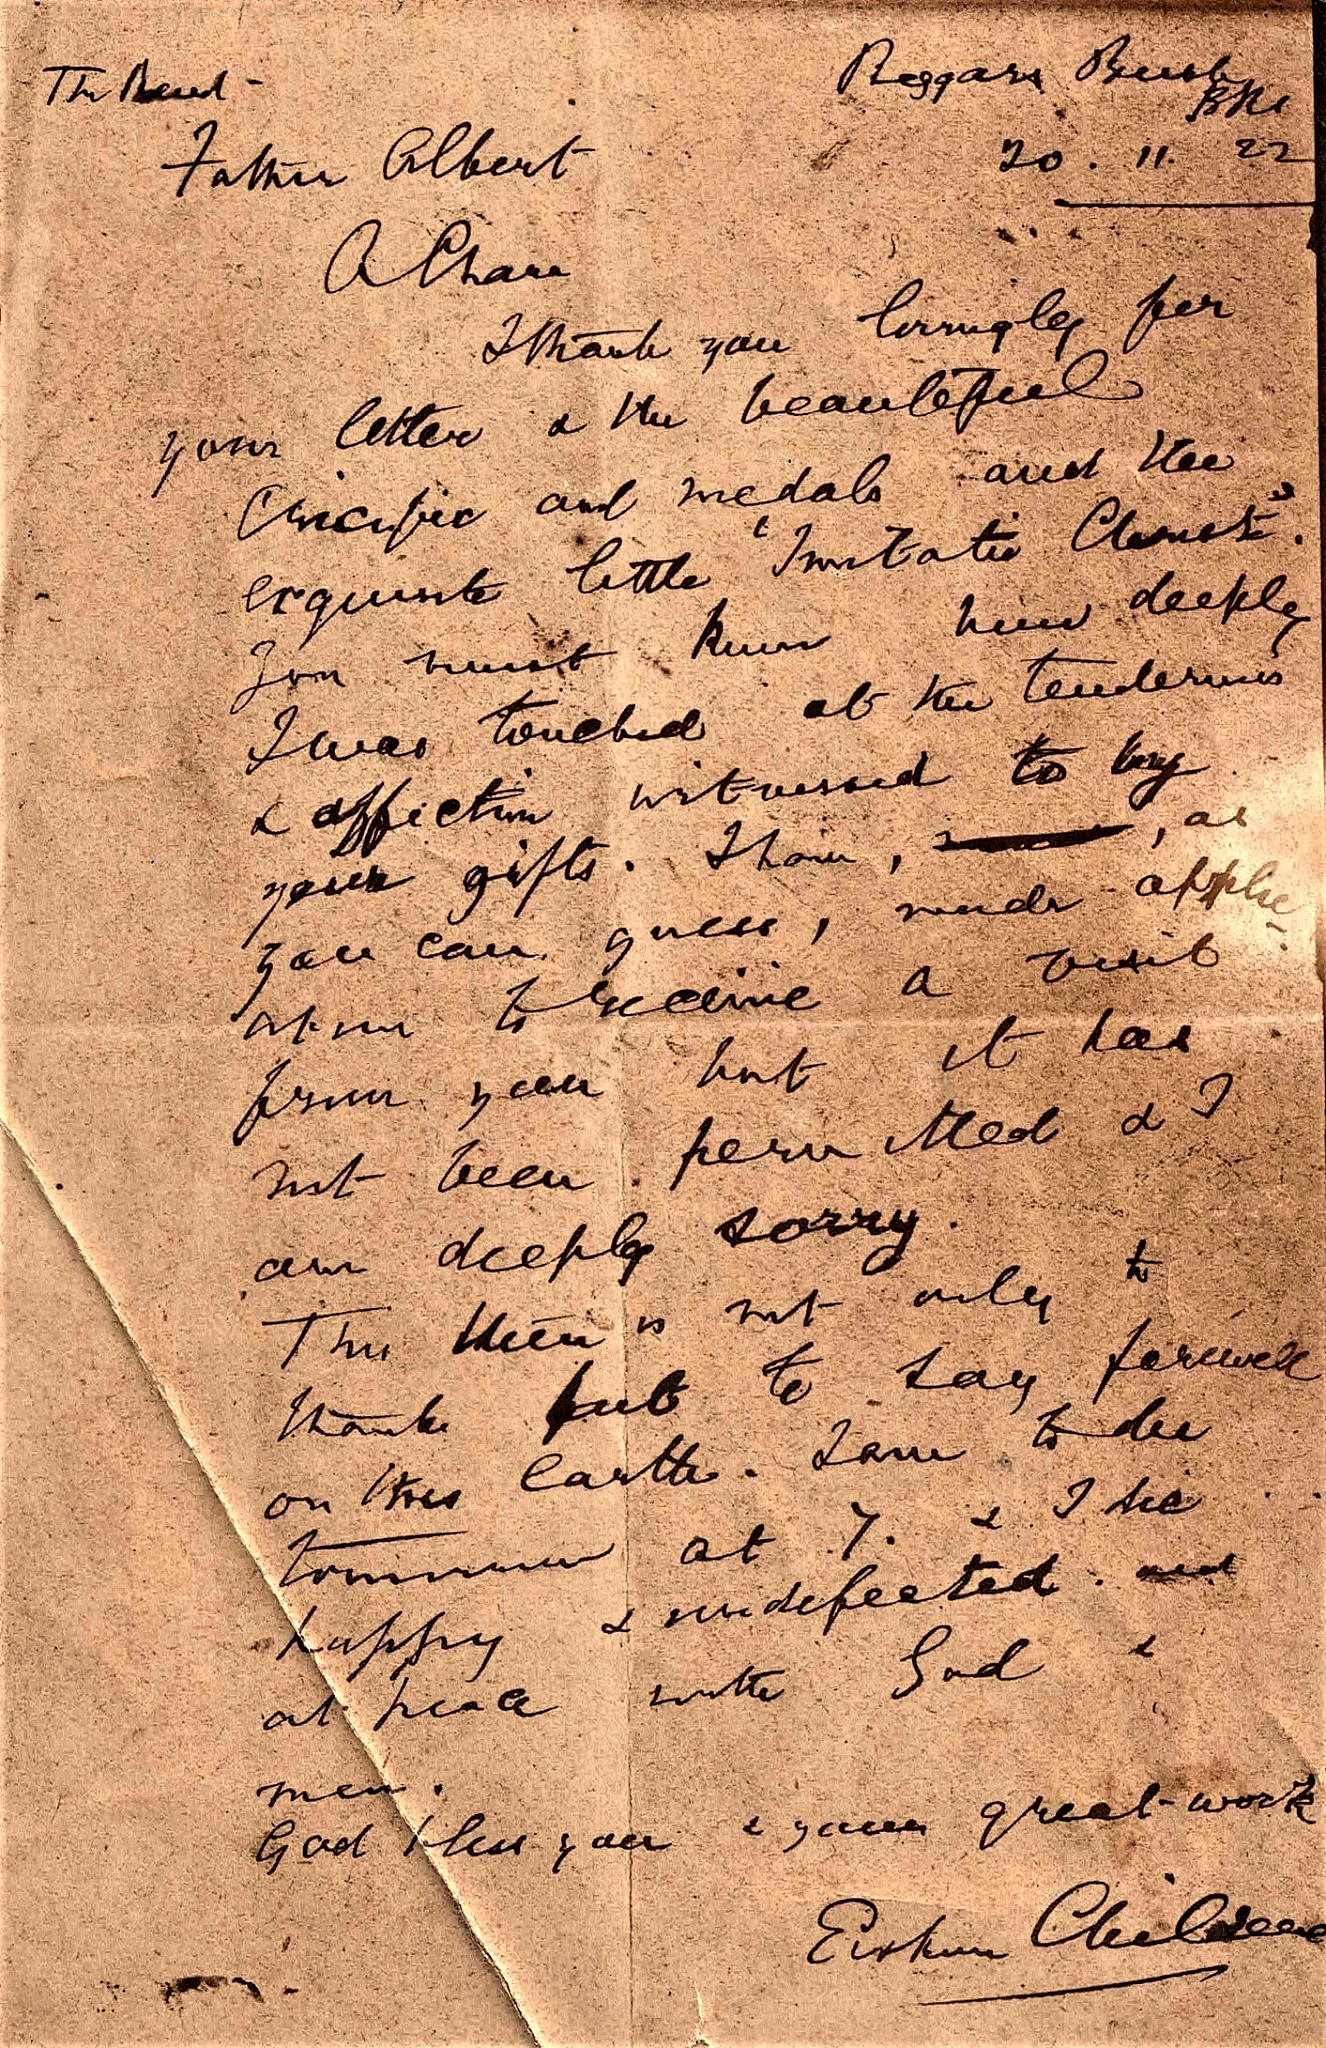 The Revd -
Beggars Bush
Bks
Father Albert
20. 11. 22
A Chara
I thank you lovingly for
your letter & the beautiful
Crucifix and medals and the
exquisite little "Imitatio Christi".
You must know how deeply
I was touched at the tenderness
& affection witnessed to by
your gifts. I have, , as
you can guess, made applic-
ation to receive a visit
from you but it has
not been permitted & I
am deeply sorry.
This then is not only to
thank but to say farewell
on this earth. I am to die
tomorrow at 7. & I die
happy & undefeated. and
at peace with God &
men.
God bless you & your great work
Erskine Childers